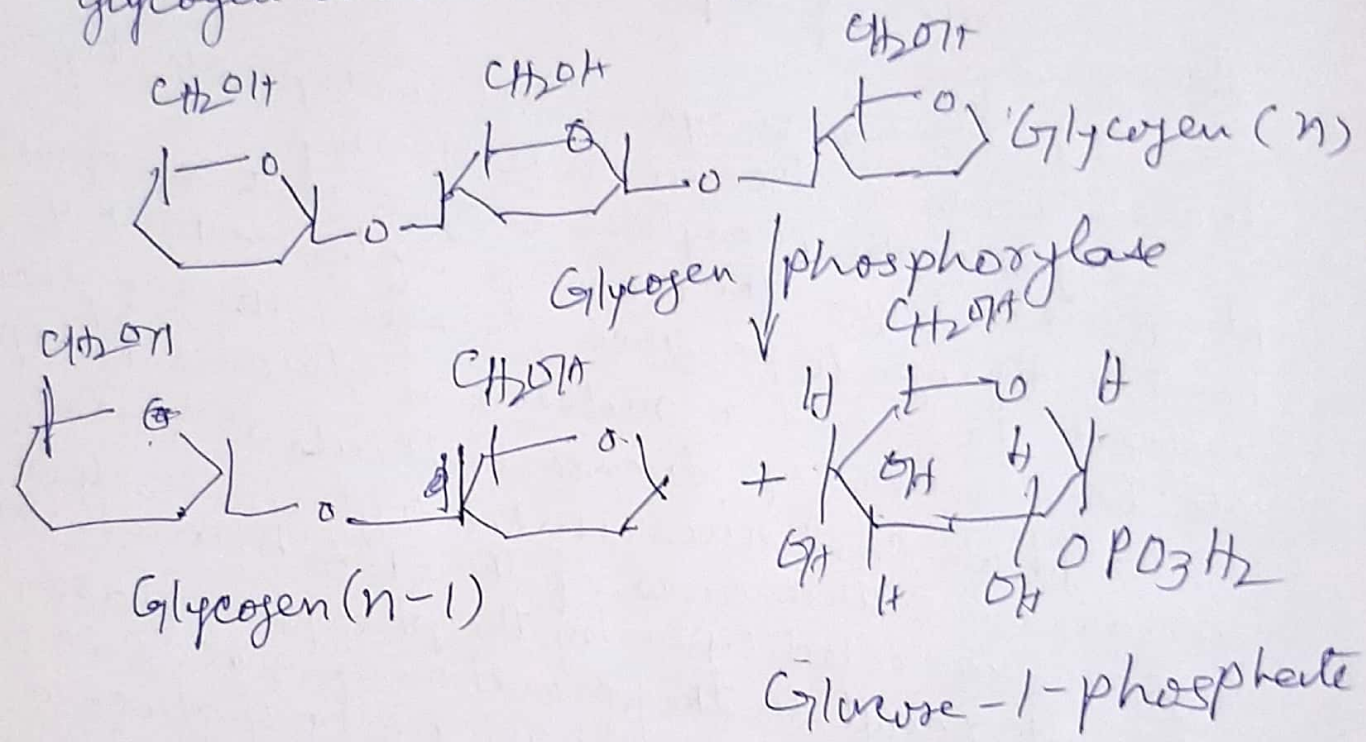 CH2OH CH2OH CH2OH
O O O Glycogen (n)
O O
Glycogen phosphorylase
CH2OH CH2OH CH2OH
O O H O H
+ OH H
O OH H OH OPO3H2
Glycogen (n-1)
Glucose-1-phosphate